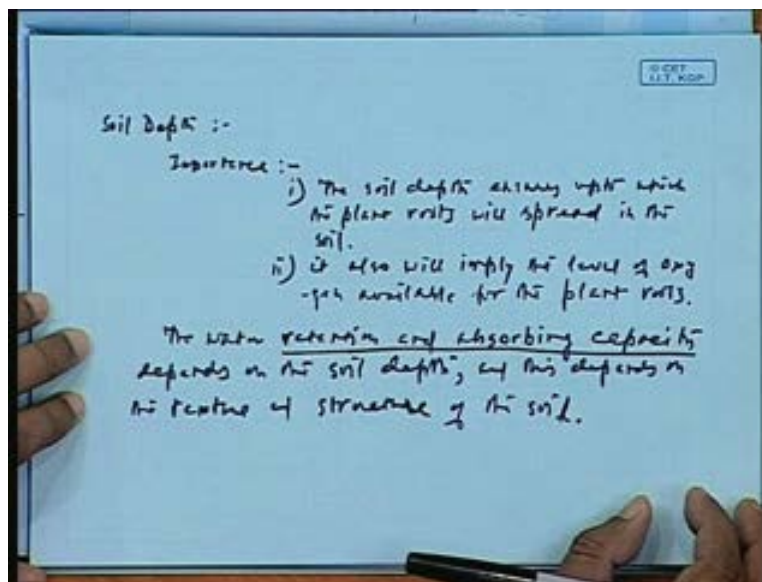 © CET
I.I.T. KGP
Soil Depth :-
Importance :-
i) The soil depth ensures upto which
the plant roots will spread in the
soil.
ii) it also will imply the level of oxy
-gen available for the plant roots.
The water retention and absorbing capacity
depends on the soil depth, and this depends on
the texture and structure of the soil.